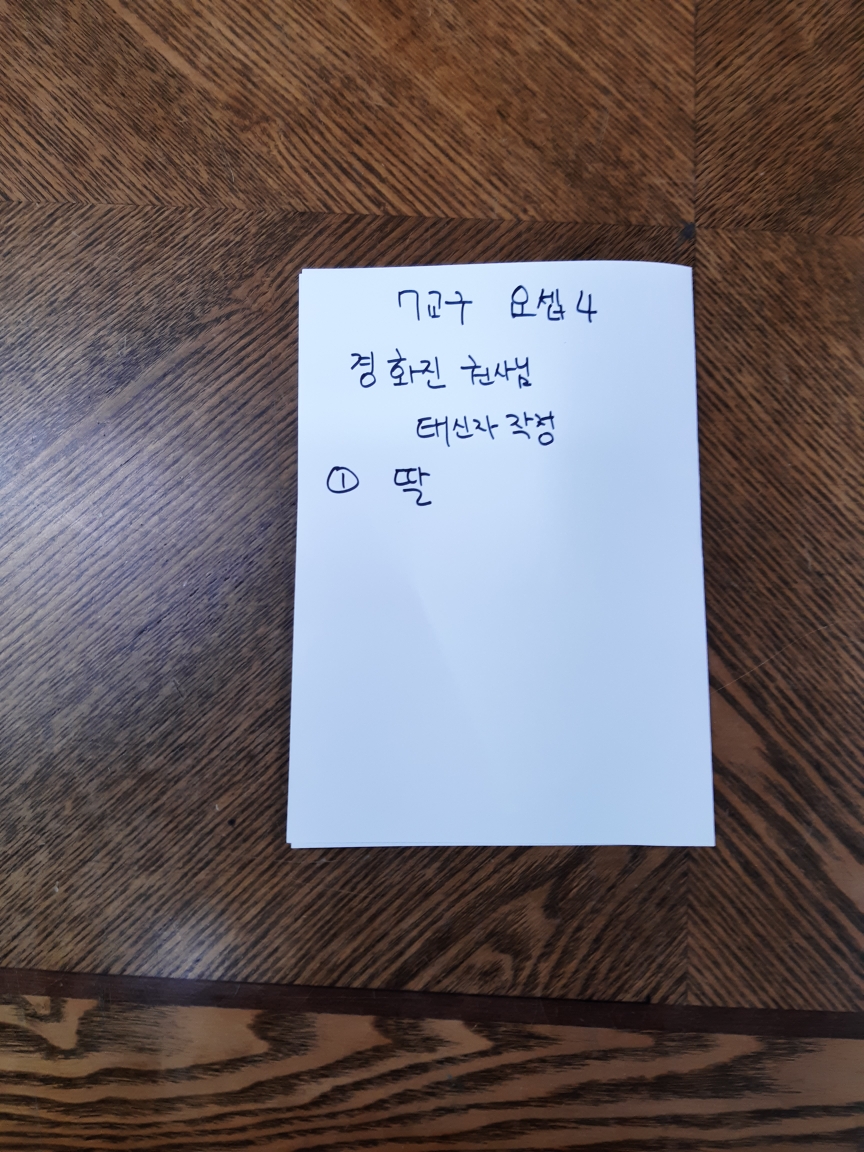 7교구 요셉4
경화진 권사님
태신자 작정
① 딸